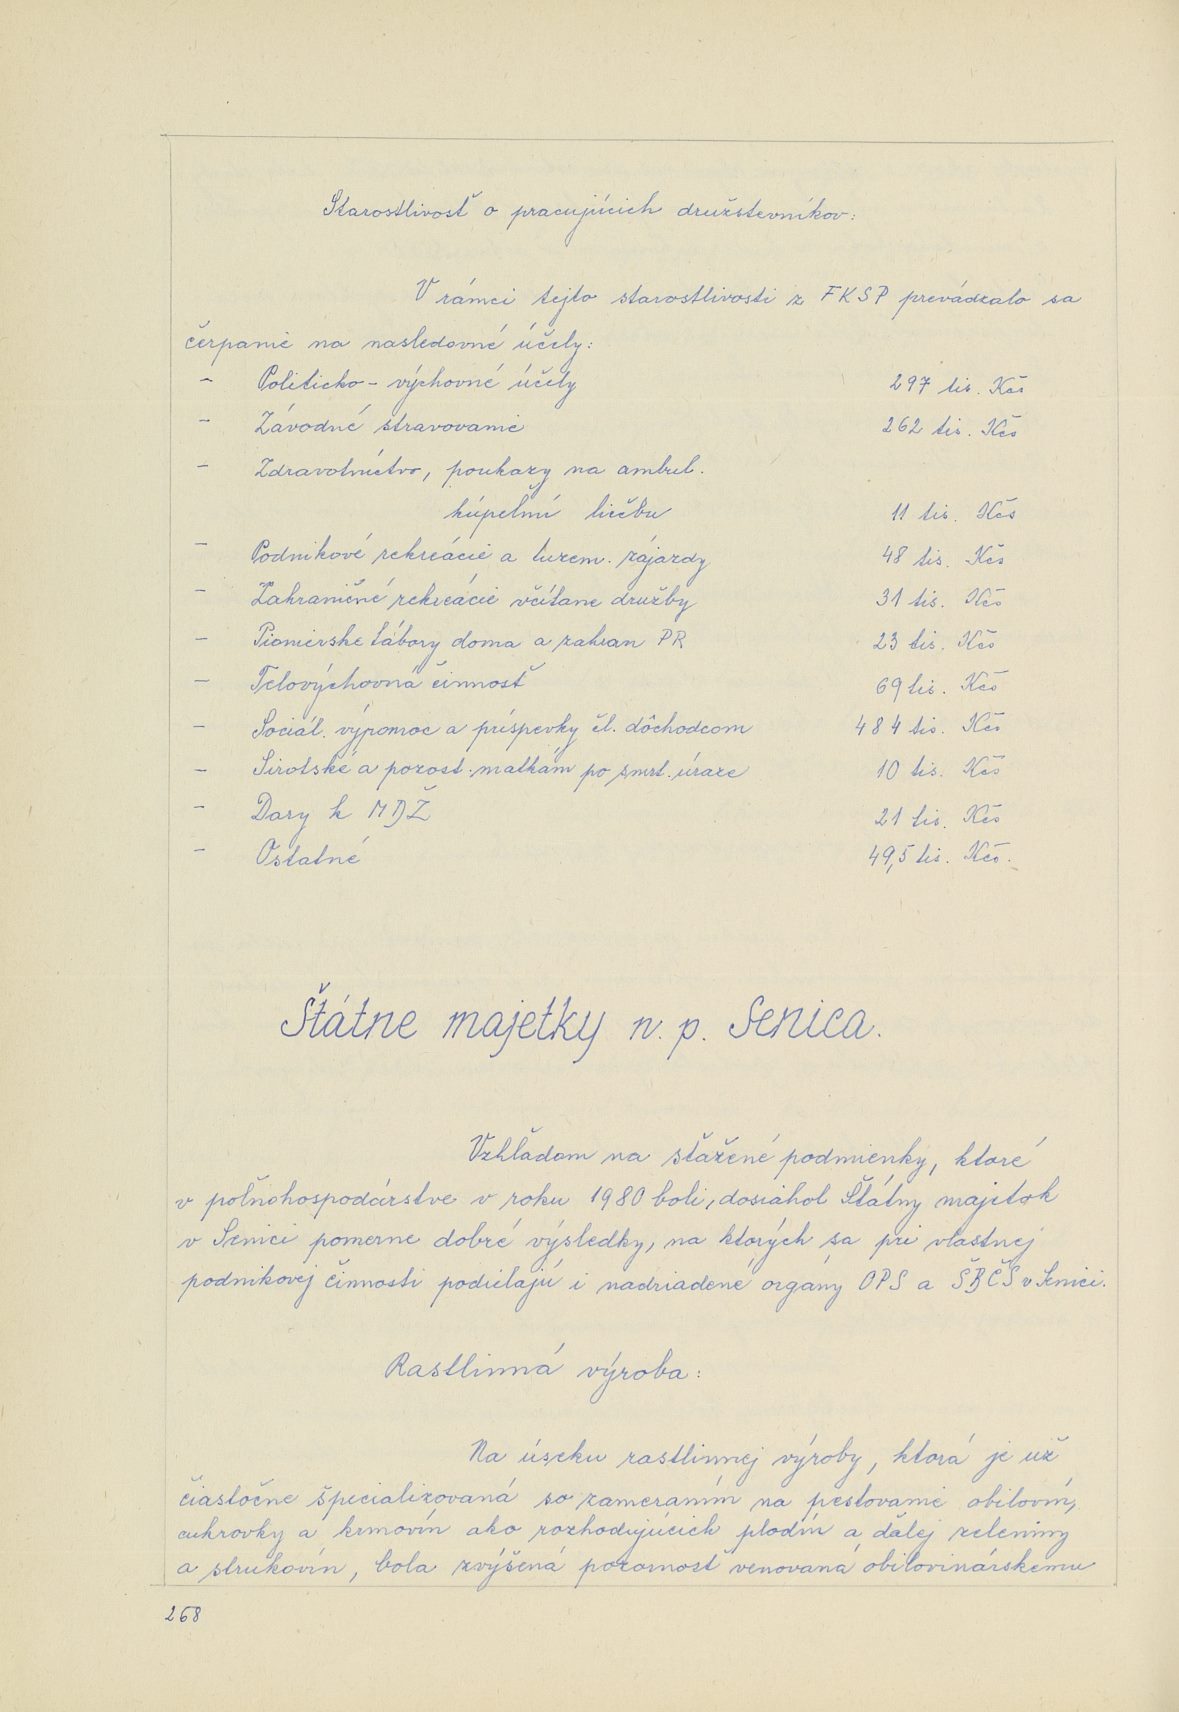 Starostlivosť o pracujúcich družstevníkov:
V rámci tejto starostlivosti z FKSP prevádzalo sa
čerpanie na nasledovné účely:
- Politicko - výchovné účely 297 tis. Kčs
- Závodné stravovanie 262 tis. Kčs
- Zdravotníctvo, poukazy na ambul.
kúpeľní liečbu 11 tis. Kčs
- Podnikové rekreácie a tuzem. zájazdy 48 tis. Kčs
- Zahraničné rekreácie včítane družby 31 tis. Kčs
- Pionierske tábory doma a zahran PR 23 tis. Kčs
- Telovýchovná činnosť 69 tis. Kčs
- Sociál. výpomoc a príspevky čl. dôchodcom 484 tis. Kčs
- Sirotské a pozost. matkám po smrt. úraze 10 tis. Kčs
- Dary k MDŽ 21 tis. Kčs
- Ostatné 49,5 tis. Kčs.
Štátne majetky n. p. Senica.
Vzhľadom na sťažené podmienky, ktoré
v poľnohospodárstve v roku 1980 boli, dosiahol Štátny majetok
v Senici pomerne dobré výsledky, na ktorých sa pri vlastnej
podnikovej činnosti podieľajú i nadriadené orgány OPS a ŠBČS v Senici.
Rastlinná výroba:
Na úseku rastlinnej výroby, ktorá je už
čiastočne špecializovaná so zameraním na pestovanie obilovín,
cukrovky a krmovín ako rozhodujúcich plodín a ďalej zeleniny
a strukovín, bola zvýšená pozornosť venovaná obilovinárskemu
268